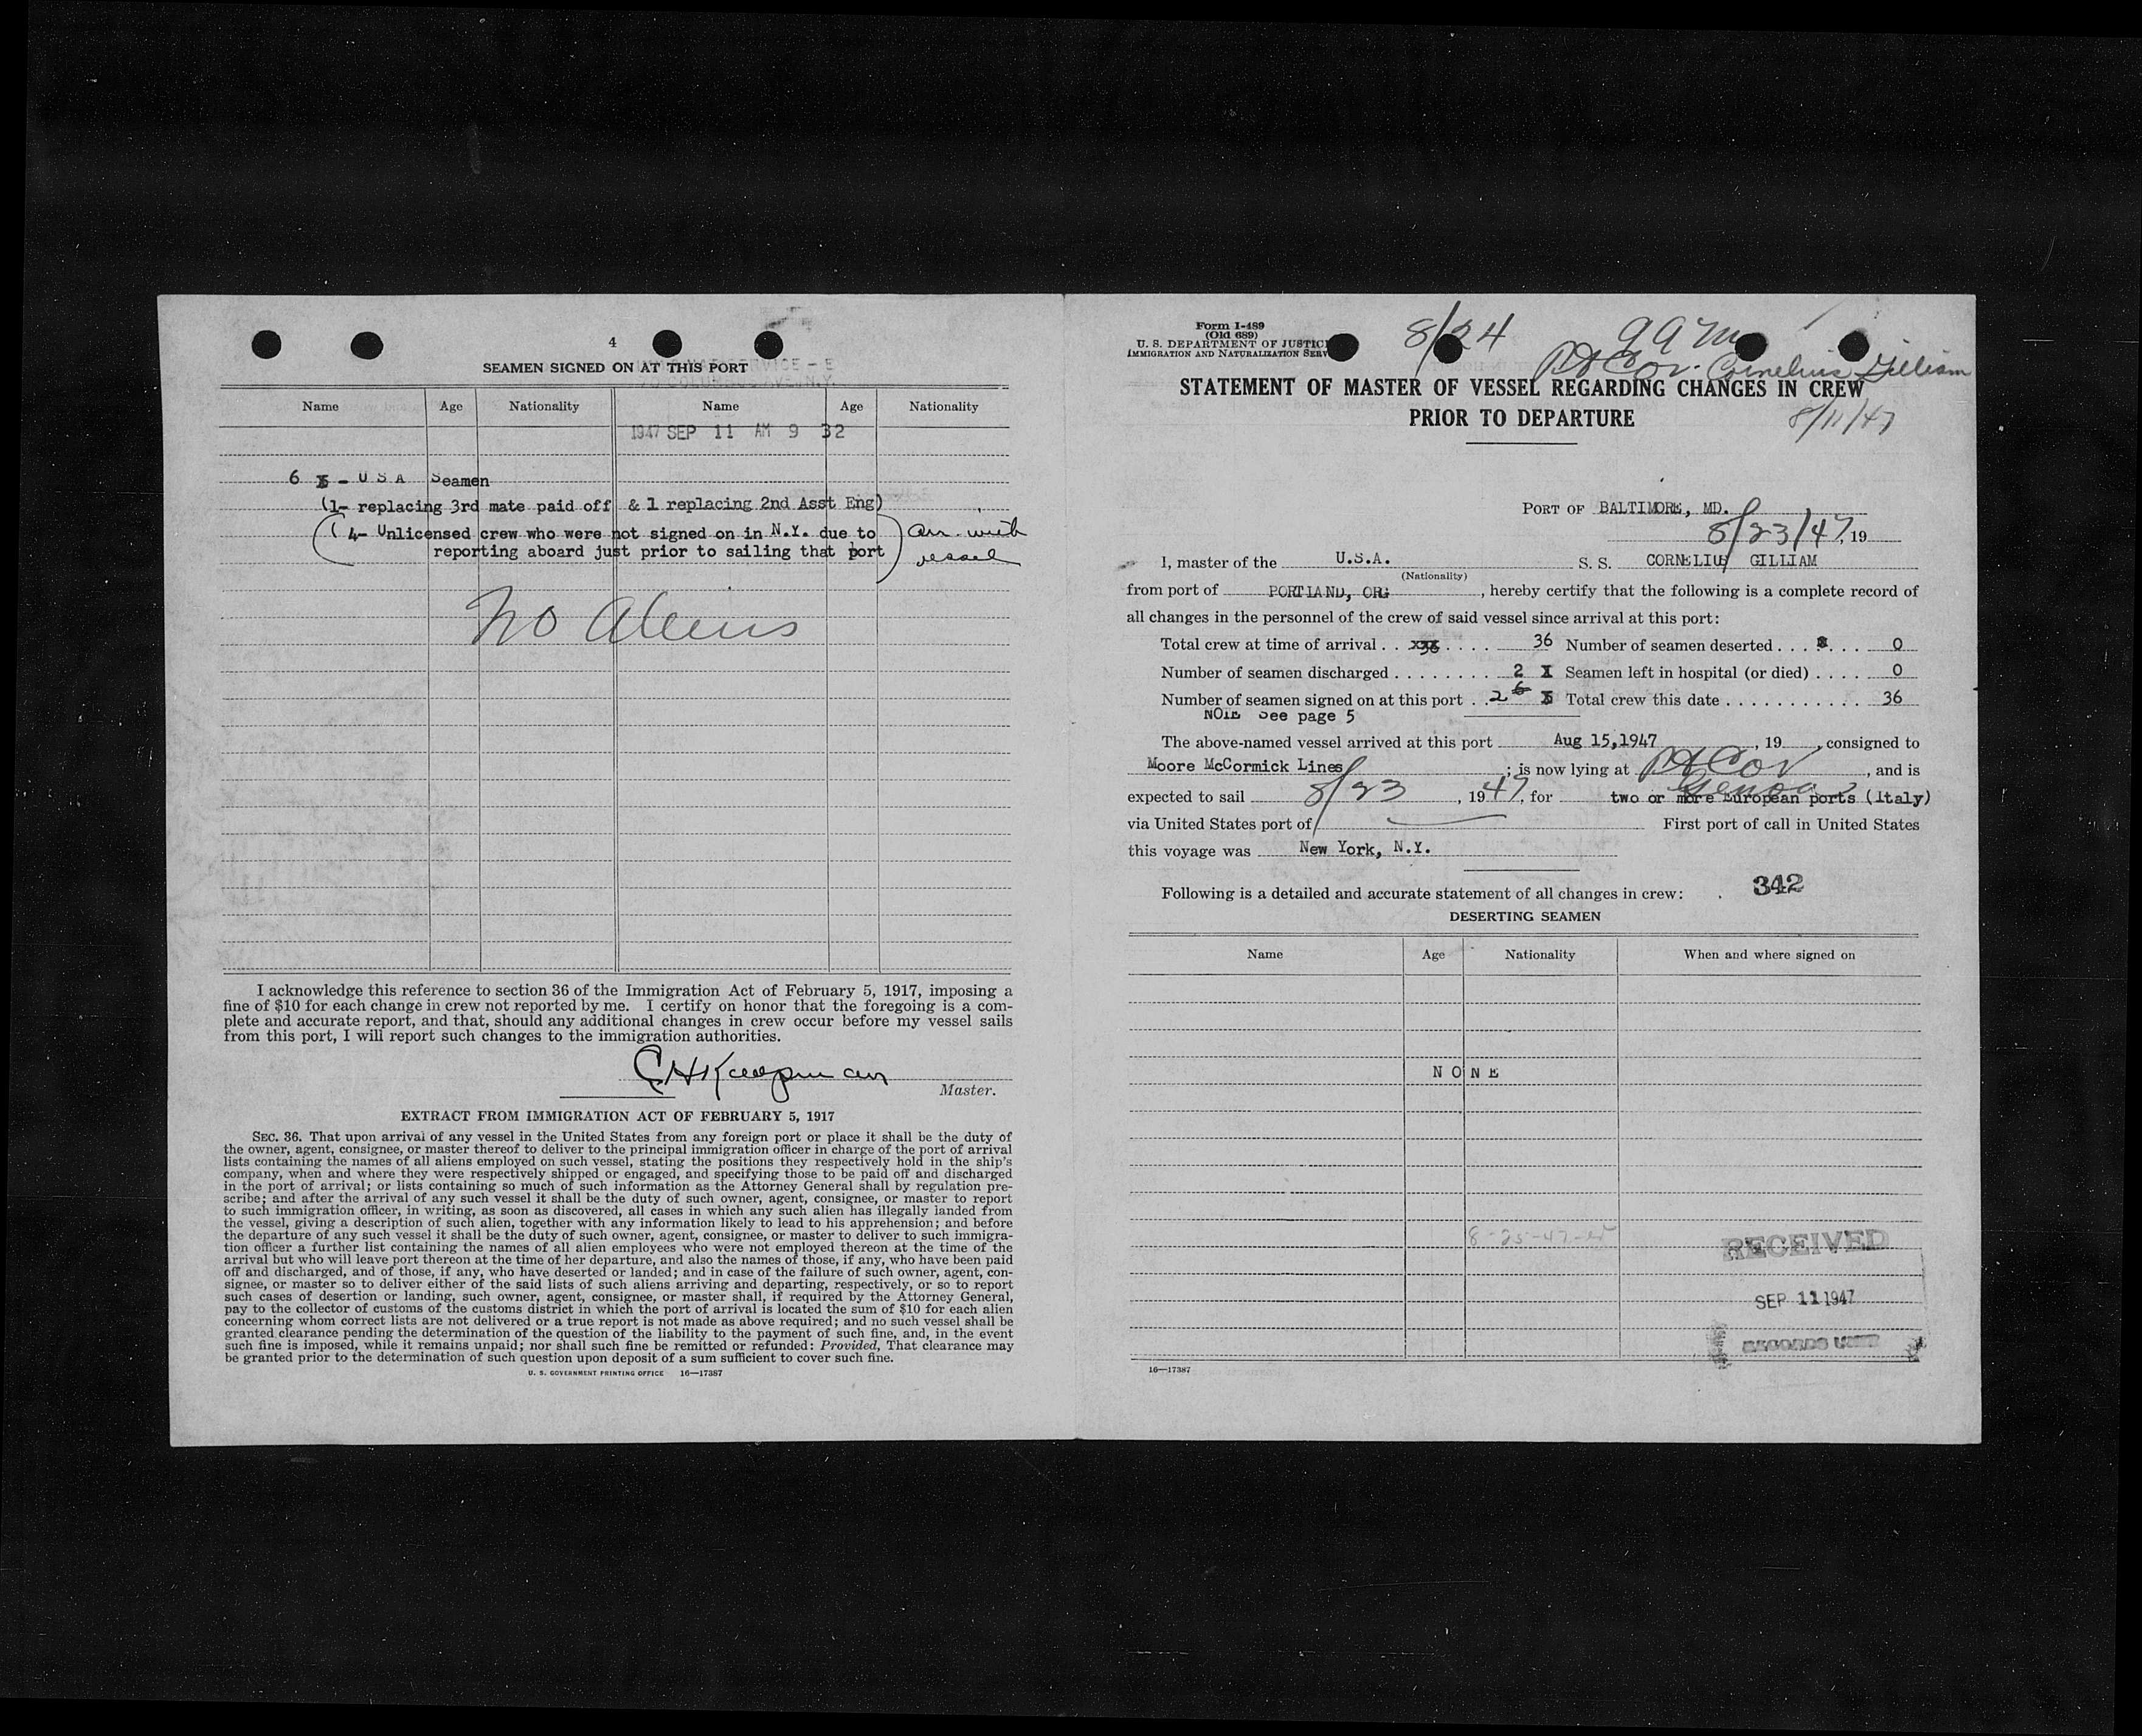 4
SEAMEN SIGNED ON AT THIS PORT
Name Age Nationality Name Age Nationality
1947 SEP 11 AM 9 32
6 - U S A Seamen
(1- replacing 3rd mate paid off & 1 replacing 2nd Asst Eng)
( 4- Unlicensed crew who were not signed on in N.Y. due to
reporting aboard just prior to sailing that port
arr. with
vessel
No Aliens
I acknowledge this reference to section 36 of the Immigration Act of February 5, 1917, imposing a
fine of $10 for each change in crew not reported by me. I certify on honor that the foregoing is a com-
plete and accurate report, and that, should any additional changes in crew occur before my vessel sails
from this port, I will report such changes to the immigration authorities.
Master.
EXTRACT FROM IMMIGRATION ACT OF FEBRUARY 5, 1917
SEC. 36. That upon arrival of any vessel in the United States from any foreign port or place it shall be the duty of
the owner, agent, consignee, or master thereof to deliver to the principal immigration officer in charge of the port of arrival
lists containing the names of all aliens employed on such vessel, stating the positions they respectively hold in the ship's
company, when and where they were respectively shipped or engaged, and specifying those to be paid off and discharged
in the port of arrival; or lists containing so much of such information as the Attorney General shall by regulation pre-
scribe; and after the arrival of any such vessel it shall be the duty of such owner, agent, consignee, or master to report
to such immigration officer, in writing, as soon as discovered, all cases in which any such alien has illegally landed from
the vessel, giving a description of such alien, together with any information likely to lead to his apprehension; and before
the departure of any such vessel it shall be the duty of such owner, agent, consignee, or master to deliver to such immigra-
tion officer a further list containing the names of all alien employees who were not employed thereon at the time of the
arrival but who will leave port thereon at the time of her departure, and also the names of those, if any, who have been paid
off and discharged, and of those, if any, who have deserted or landed; and in case of the failure of such owner, agent, con-
signee, or master so to deliver either of the said lists of such aliens arriving and departing, respectively, or so to report
such cases of desertion or landing, such owner, agent, consignee, or master shall, if required by the Attorney General,
pay to the collector of customs of the customs district in which the port of arrival is located the sum of $10 for each alien
concerning whom correct lists are not delivered or a true report is not made as above required; and no such vessel shall be
granted clearance pending the determination of the question of the liability to the payment of such fine, and, in the event
such fine is imposed, while it remains unpaid; nor shall such fine be remitted or refunded: Provided, That clearance may
be granted prior to the determination of such question upon deposit of a sum sufficient to cover such fine.
U. S. GOVERNMENT PRINTING OFFICE 16—17387
Form I-489
(Old 689)
U. S. DEPARTMENT OF JUSTIC
IMMIGRATION AND NATURALIZATION SERV
8/24
Pt Cov. Cornelius Gilliam
STATEMENT OF MASTER OF VESSEL REGARDING CHANGES IN CREW
PRIOR TO DEPARTURE
8/11/47
PORT OF BALTIMORE, MD.
8/23/47, 19
I, master of the U.S.A. S. S. CORNELIUS GILLIAM
(Nationality)
from port of PORTLAND, OR; , hereby certify that the following is a complete record of
all changes in the personnel of the crew of said vessel since arrival at this port:
Total crew at time of arrival . . xxx . . . . 36 Number of seamen deserted . . . . . . 0
Number of seamen discharged . . . . . . . . . 2 Seamen left in hospital (or died) . . . . 0
Number of seamen signed on at this port . . 2 6 Total crew this date . . . . . . . . . . . 36
NOTE See page 5
The above-named vessel arrived at this port Aug 15,1947 , 19 , consigned to
Moore McCormick Lines ; is now lying at Pt Cov , and is
Genoa
expected to sail 8/23 , 1947, for two or more European ports (Italy)
via United States port of First port of call in United States
this voyage was New York, N.Y.
Following is a detailed and accurate statement of all changes in crew:
342
DESERTING SEAMEN
Name Age Nationality When and where signed on
N O N E
8-25-47
RECEIVED
SEP 11 1947
RECORDS UNIT
16—17387